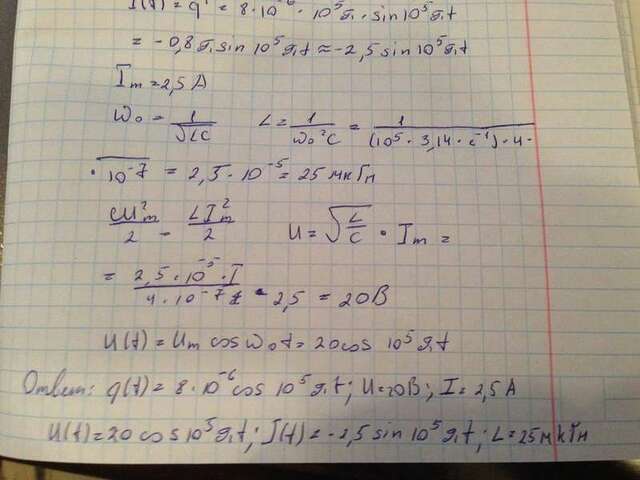 I(t) = q' = 8·10⁻⁶ · 10⁵π · sin 10⁵πt
= -0,8π sin 10⁵πt ≈ -2,5 sin 10⁵πt
Iₘ = 2,5 А
ω₀ = 1/√LC   L = 1/ω₀²C = 1/(10⁵ · 3,14 · с⁻¹) · 4 ·
· 10⁻⁷ = 2,5 · 10⁻⁵ = 25 мкГн
CU²ₘ/2 = LI²ₘ/2   U = √L/C · Iₘ =
= 2,5 · 10⁻⁵ · I / 4 · 10⁻⁷ · 2,5 = 20В
U(t) = Uₘ cos ω₀t = 20cos 10⁵πt
Ответ: q(t) = 8·10⁻⁶ cos 10⁵πt; U=20В; I = 2,5 А
U(t) = 20 cos 10⁵πt; I(t) = -2,5 sin 10⁵πt; L = 25мкГн